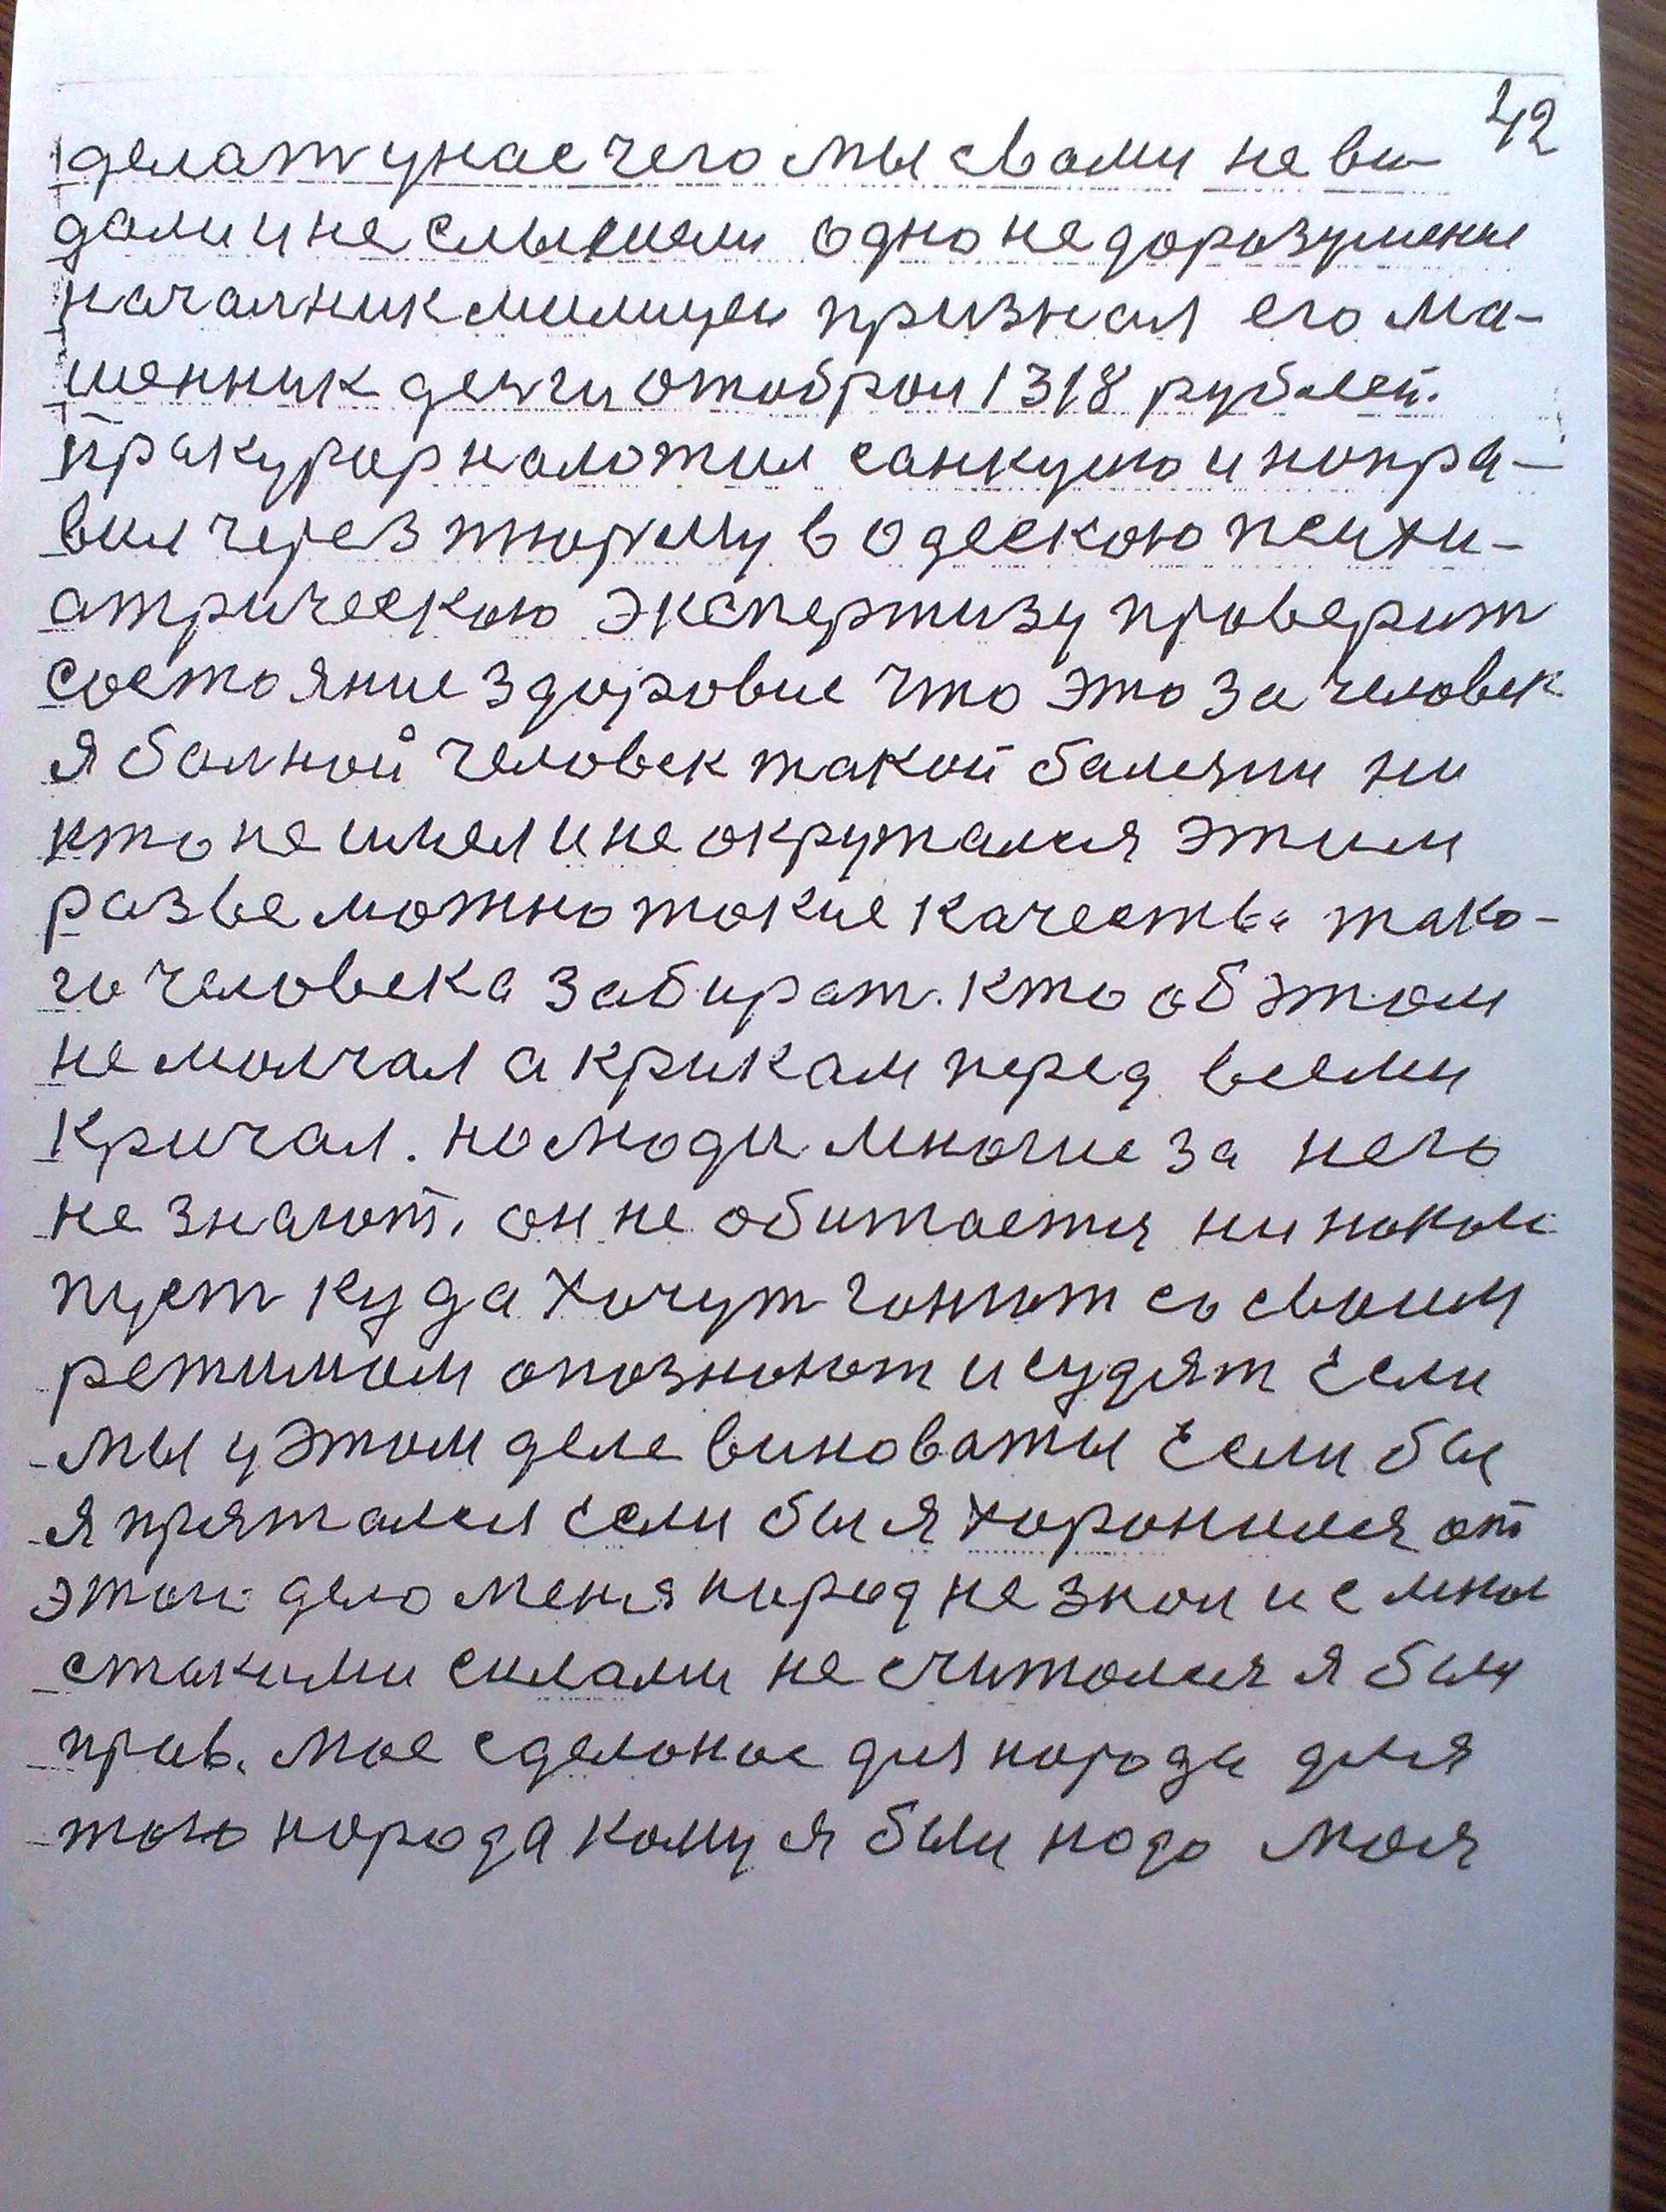 42
делат у нас чего мы с вами не ви-
дали и не слышали одно недоразумение
началник милиции признал его ма-
шенник денги отобрал 1318 рублей.
пракурор наложил санкцию и напра-
вил через тюрму в Одескою психи-
атрическою экспертизу проверит
состояние здоровие что это за человек
я балной человек такой балезни ни
кто не имел и не окружался этим
разве можно такие качества тако-
го человека забират. кто об этом
не молчал а крикам перед всеми
кричал. но люди многие за него
не знают. он не обитается ни наком
пуст куда хочут гонют со своим
режимам опознают и судят Если
мы у этом деле виноваты Если бы
я прятался Если бы я хоронился от
этой дело меня народ не знал и с мной
с такими силами не считался я был
прав. мое сделоное для народа для
того народа кому я был надо моя